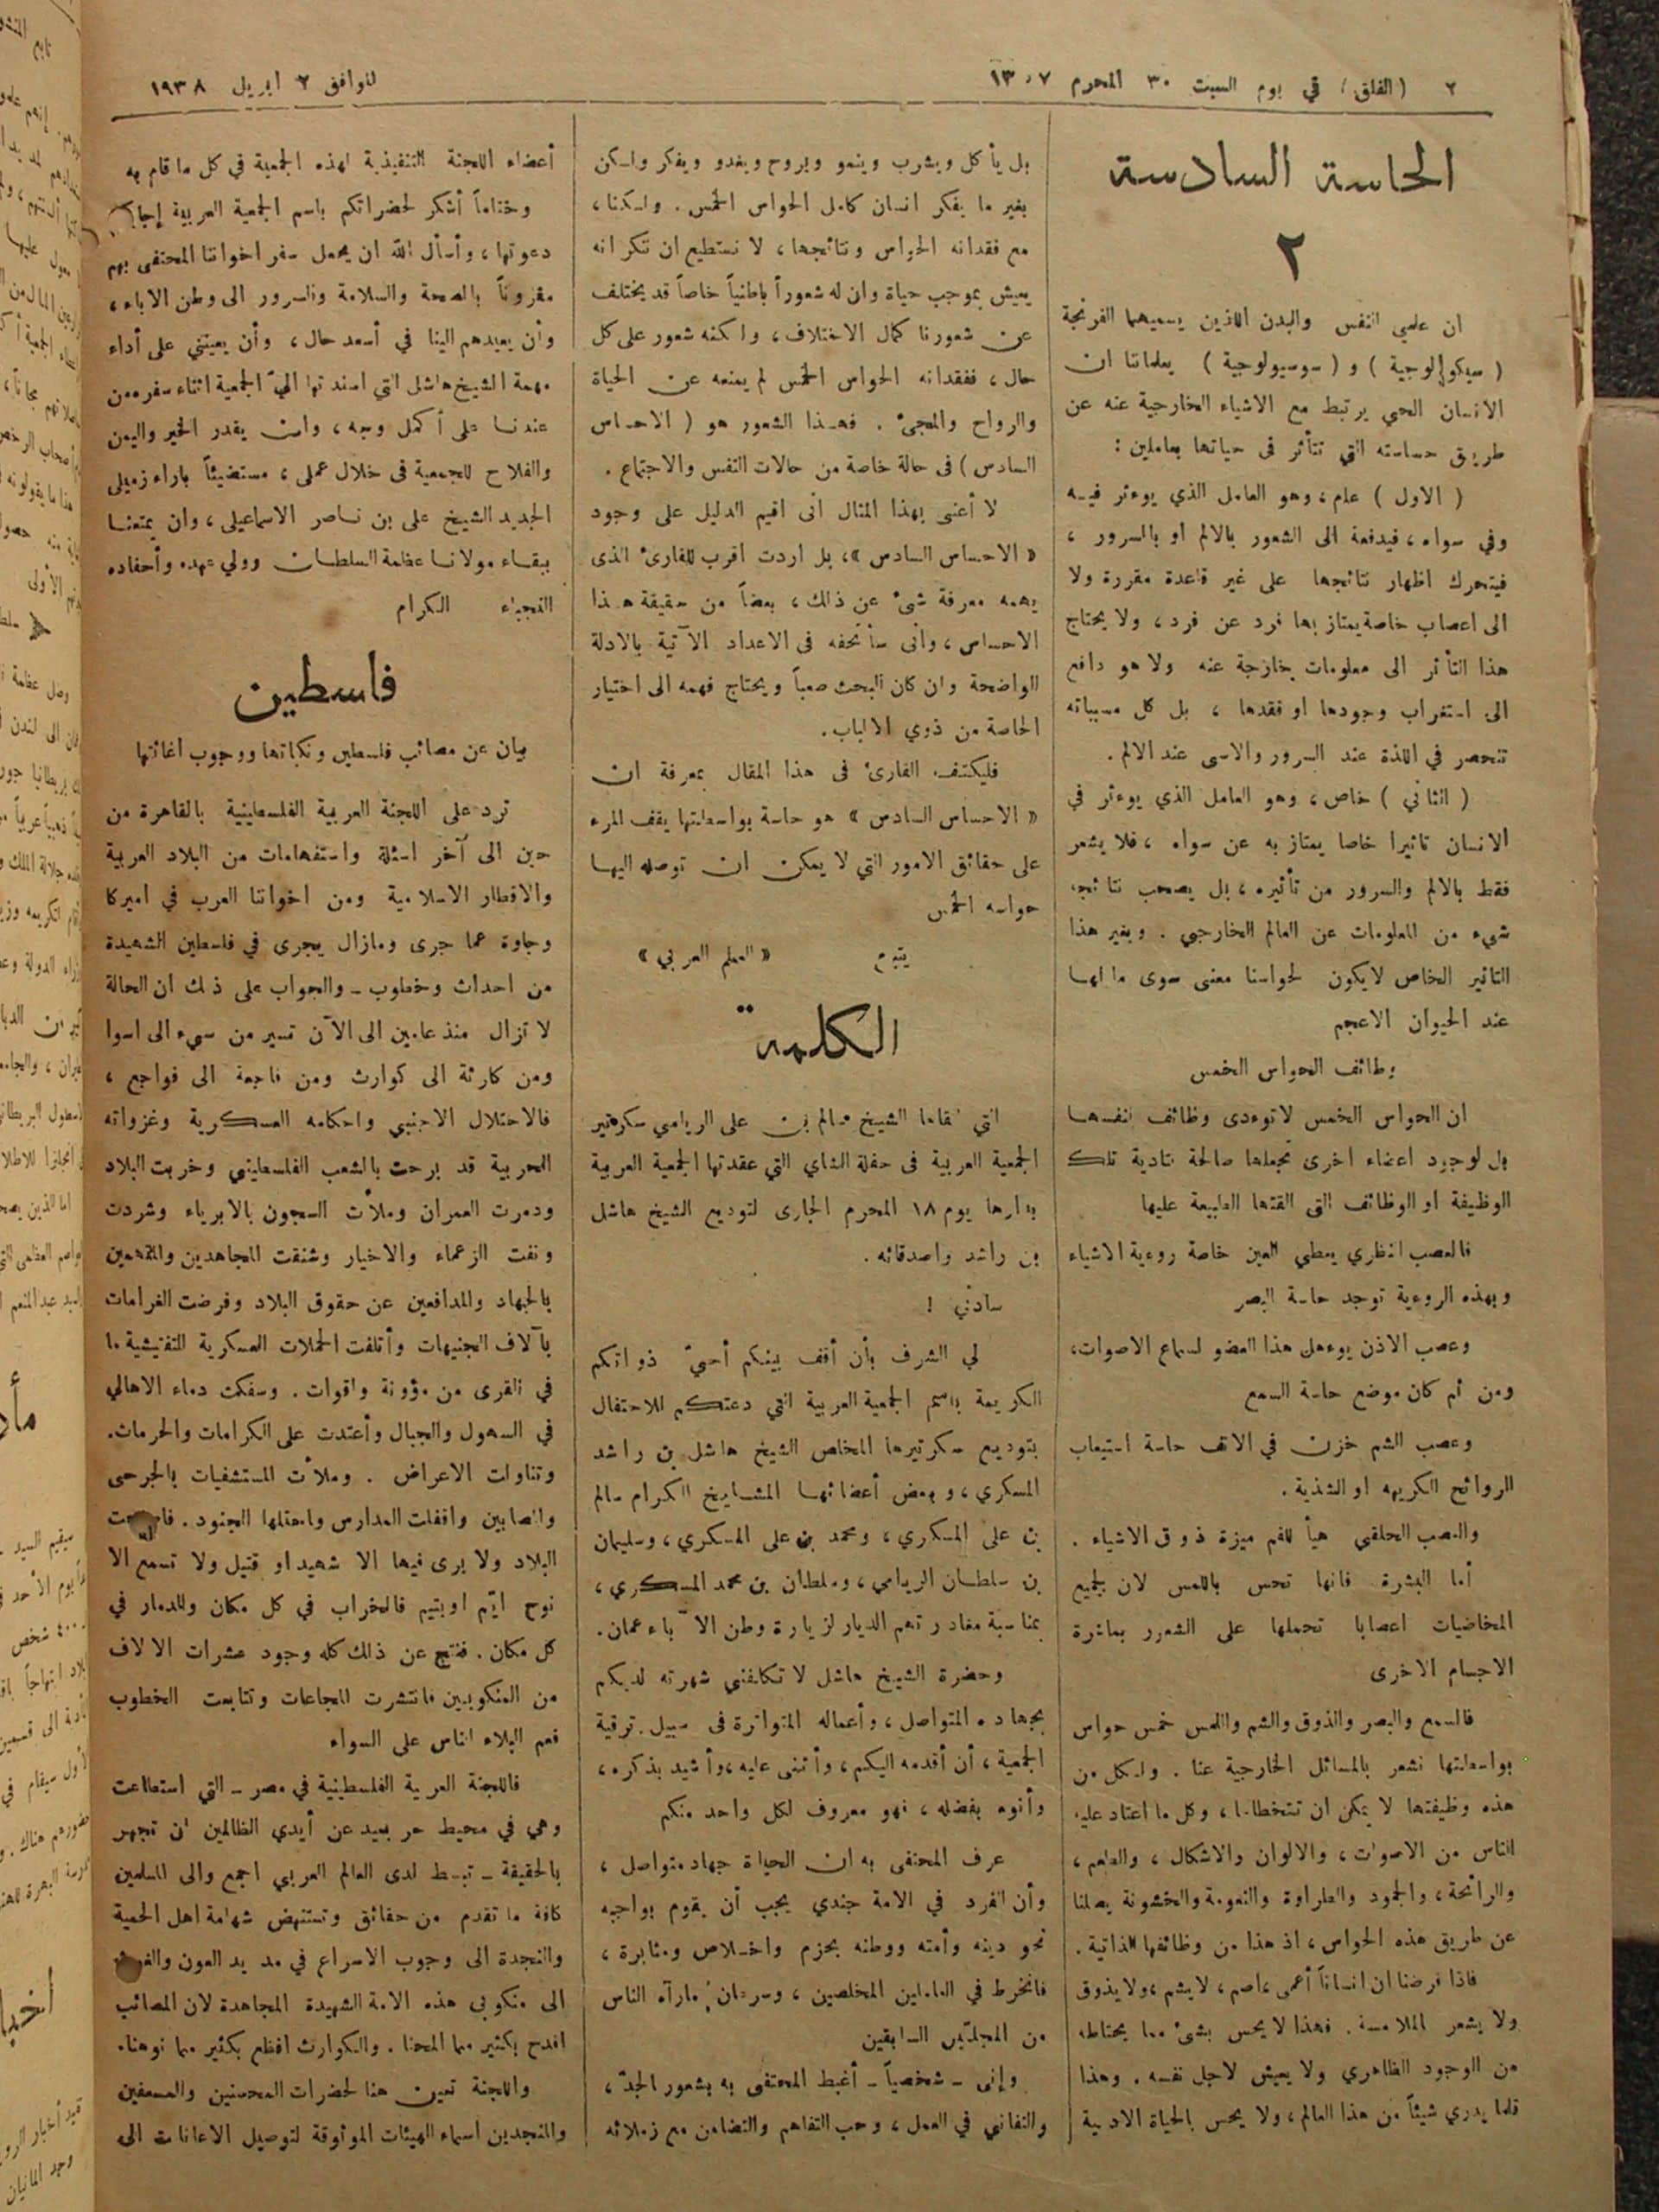 ٢ (الفلق) في يوم السبت ٣٠ المحرم ١٣٥٧
الموافق ٢ ابريل ١٩٣٨
الحاسة السادسة
٢
ان علمي النفس والبدن اللذين يسميهما الفرنجة
( سيكولوجية ) و ( سوسيولوجية ) يعلماننا ان
الانسان الحي يرتبط مع الاشياء الخارجية عنه عن
طريق حساسته التي تتأثر فى حياتها بعاملين :
( الاول ) عام ، وهو العامل الذي يوءثر فيه
وفي سواه ، فيدفعة الى الشعور بالالم او بالسرور ،
فيتحرك اظهار نتائجها على غير قاعدة مقررة ولا
الى اعصاب خاصة يمتاز بها فرد عن فرد ، ولا يحتاج
هذا التأثر الى معلومات خارجة عنه ولا هو دافع
الى استغراب وجودها او فقدها ، بل كل مسبباته
تنحصر في اللذة عند السرور والاسى عند الالم .
( الثاني ) خاص ، وهو العامل الذي يوءثر في
الانسان تاثيرا خاصا يمتاز به عن سواه ، فلا يشعر
فقط بالالم والسرور من تأثيره ، بل يصحب نتائجه
شيء من المعلومات عن العالم الخارجي . وبغير هذا
التاثير الخاص لايكون لحواسنا معنى سوى ما لها
عند الحيوان الاعجم
وظائف الحواس الخمس
ان الحواس الخمس لاتوءدى وظائف انفسها
بل لوجود اعضاء اخرى تجعلها صالحة لتادية تلك
الوظيفة او الوظائف التى القتها الطبيعة عليها
فالعصب النظري يعطي العين خاصة روءية الاشياء
وبهذه الروءية توجد حاسة البصر
وعصب الاذن يوءهل هذا العضو لسماع الاصوات ،
ومن ثم كان موضع حاسة السمع
وعصب الشم خزن في الانف حاسة استيعاب
الروائح الكريهه او الشذية .
والعصب الحلقي هيأ للفم ميزة ذوق الاشياء .
أما البشرة فانها تحس باللمس لان لجميع
المخاضيات اعصابا تحملها على الشعور بمباشرة
الاجسام الاخرى
فالسمع والبصر والذوق والشم واللمس خمس حواس
بواسطتها نشعر بالمسائل الخارجية عنا . ولكل من
هذه وظيفتها لا يمكن ان تتخطاها ، وكل ما اعتاد عليه
الناس من الاصوات ، والالوان والاشكال ، والطعم ،
والرائحة ، والجمود والطراوة والنعومة والخشونة يصلنا
عن طريق هذه الحواس ، اذ هذا من وظائفها الذاتية .
فاذا فرضنا ان انساناً أعمى ، اصم ، لايشم ، ولا يذوق
ولا يشعر الملامسة . فهذا لا يحس بشئ مما يحتاطه
من الوجود الظاهري ولا يعيش لاجل نفسه . وهذا
قلما يدري شيئاً من هذا العالم ، ولا يحس بالحياة الادبية
بل يأكل ويشرب وينمو ويروح ويغدو ويفكر ولكن
بغير ما يفكر انسان كامل الحواس الخمس . ولكننا ،
مع فقدانه الحواس ونتائجها ، لا نستطيع ان ننكر انه
يعيش بموجب حياة وان له شعوراً باطنياً خاصاً قد يختلف
عن شعورنا كمال الاختلاف ، ولكنه شعور على كل
حال ، ففقدانه الحواس الخمس لم يمنعه عن الحياة
والرواح والمجئ . فهذا الشعور هو ( الاحساس
السادس ) فى حالة خاصة من حالات النفس والاجتماع .
لا أعنى بهذا المثال انى اقيم الدليل على وجود
« الاحساس السادس » ، بل اردت اقرب للقارئ الذى
يهمه معرفة شئ عن ذلك ، بعضاً من حقيقة هذا
الاحساس ، وانى سأتحفه فى الاعداد الآتية بالادلة
الواضحة وان كان البحث صعباً ويحتاج فهمه الى اختيار
الخاصة من ذوي الالباب .
فليكتف القارئ فى هذا المقال بمعرفة ان
« الاحساس السادس » هو حاسة بواسطتها يقف المرء
على حقائق الامور التي لا يمكن ان توصله اليها
حواسه الخمس
يتبع « المعلم العربي »
الكلمة
التي القاها الشيخ سالم بن على الريامي سكرتير
الجمعية العربية فى حفلة الشاي التي عقدتها الجمعية العربية
بدارها يوم ١٨ المحرم الجارى لتوديع الشيخ هاشل
بن راشد واصدقائه .
سادتي !
لي الشرف بأن أقف بينكم أحيّ ذواتكم
الكريمة باسم الجمعية العربية التي دعتكم للاحتفال
بتوديع سكرتيرها المخلص الشيخ هاشل بن راشد
المسكري ، وبعض أعضائها المشايخ الكرام سالم
بن على المسكري ، ومحمد بن على المسكري ، وسليمان
بن سلطان الريامي ، وسلطان بن محمد المسكري ،
بمناسبة مغادرتهم الديار لزيارة وطن الآباء عمان .
وحضرة الشيخ هاشل لا تكلفني شهرته لديكم
بجهاده المتواصل ، وأعماله المتواترة فى سبيل ترقية
الجمعية ، أن أقدمه اليكم ، وأثنى عليه ، وأشيد بذكره ،
وأنوه بفضله ، فهو معروف لكل واحد منكم
عرف المحتفى به ان الحياة جهاد متواصل ،
وأن الفرد في الامة جندي يجب أن يقوم بواجبه
نحو دينه وأمته ووطنه بحزم واخلاص ومثابرة ،
فانخرط في العاملين المخلصين ، وسرعان مارآه الناس
من المجلّين السابقين
وإنى ــ شخصياً ــ أغبط المحتفى به بشعور الجدّ ،
والتفاني في العمل ، وحب التفاهم والتضامن مع زملائه
أعضاء اللجنة التنفيذية لهذه الجمعية في كل ما قام به
وختاماً أشكر لحضراتكم باسم الجمعية العربية
دعوتها ، وأسأل الله ان يجعل سفر اخواننا المحتفى بهم
مقروناً بالصحة والسلامة والسرور الى وطن الاباء ،
وأن يعيدهم الينا في أسعد حال ، وأن يعينني على أداء
مهمة الشيخ هاشل التي اسندتها اليّ الجمعية اثناء سفره من
عندنا على أكمل وجه ، وان يقدر الخير واليمن
والفلاح للجمعية فى خلال عملى ، مستضيئاً باراء زميلى
الجديد الشيخ على بن ناصر الاسماعيلى ، وان يمتعنا
ببقاء مولانا عظمة السلطان وولي عهده وأحفاده
النجباء الكرام
فلسطين
بيان عن مصائب فلسطين ونكباتها ووجوب اغاثتها
ترد على اللجنة العربية الفلسطينية بالقاهرة من
حين الى آخر اسئلة واستفهامات من البلاد العربية
والاقطار الاسلامية ومن اخواننا العرب في اميركا
وجاوة عما جرى ومازال يجرى في فلسطين الشهيدة
من احداث وخطوب ــ والجواب على ذلك ان الحالة
لا تزال منذ عامين الى الآن تسير من سيء الى اسوا
ومن كارثة الى كوارث ومن فاجعة الى فواجع ،
فالاحتلال الاجنبي واحكامه العسكرية وغزواته
الحربية قد برحت بالشعب الفلسطيني وخربت البلاد
ودمرت العمران وملأت السجون بالابرياء وشردت
ونفت الزعماء والاخيار وشنقت المجاهدين والمتهمين
بالجهاد والمدافعين عن حقوق البلاد وفرضت الغرامات
بآلاف الجنيهات وأتلفت الحملات العسكرية التفتيشية ما
في القرى من مؤونة واقوات . وسفكت دماء الاهالي
في السهول والجبال وأعتدت على الكرامات والحرمات .
وتناولت الاعراض . وملأت المستشفيات بالجرحى
والمصابين واقفلت المدارس واحتلها الجنود .
البلاد ولا يرى فيها الا شهيد او قتيل ولا تسمع الا
نوح ايّم او يتيم فالخراب في كل مكان والدمار في
كل مكان . فنتج عن ذلك كله وجود عشرات الالاف
من المنكوبين فانتشرت المجاعات وتتابعت الخطوب
فعم البلاء الناس على السواء
فاللجنة العربية الفلسطينية في مصر ــ التي استطاعت
وهي في محيط حر بعيد عن أيدي الظالمين ان تجهر
بالحقيقة ــ تبسط لدى العالم العربي اجمع والى المسلمين
كافة ما تقدم من حقائق وتستنهض شهامة اهل الحمية
والنجدة الى وجوب الاسراع في مد يد العون
الى منكوبي هذه الامة الشهيدة المجاهدة لان المصائب
افدح بكثير مما المحنا . والكوارث افظع بكثير مما نوهنا .
واللجنة تعين هنا لحضرات المحسنين والمسعفين
والمنجدين اسماء الهيئات الموثوقة لتوصيل الاعانات الى